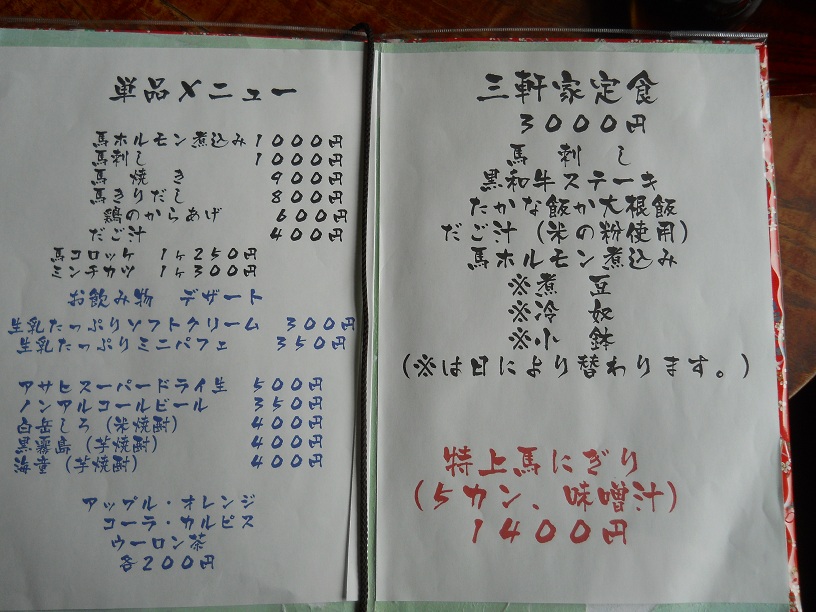 単品メニュー
馬ホルモン煮込み1000円
馬刺し 1000円
馬焼き 900円
馬きりだし 800円
鶏のからあげ 600円
だご汁 400円
馬コロッケ 1ヶ250円
ミンチカツ 1ヶ300円
お飲み物 デザート
生乳たっぷりソフトクリーム 300円
生乳たっぷりミニパフェ 350円
アサヒスーパードライ生 500円
ノンアルコールビール 350円
白岳しろ(米焼酎) 400円
黒霧島(芋焼酎) 400円
海童(芋焼酎) 400円
アップル・オレンジ
コーラ・カルピス
ウーロン茶
各200円
三軒家定食
3000円
馬刺し
黒和牛ステーキ
たかな飯か大根飯
だご汁(米の粉使用)
馬ホルモン煮込み
※煮豆
※冷奴
※小鉢
(※は日により替わります。)
特上馬にぎり
(5カン、味噌汁)
1400円